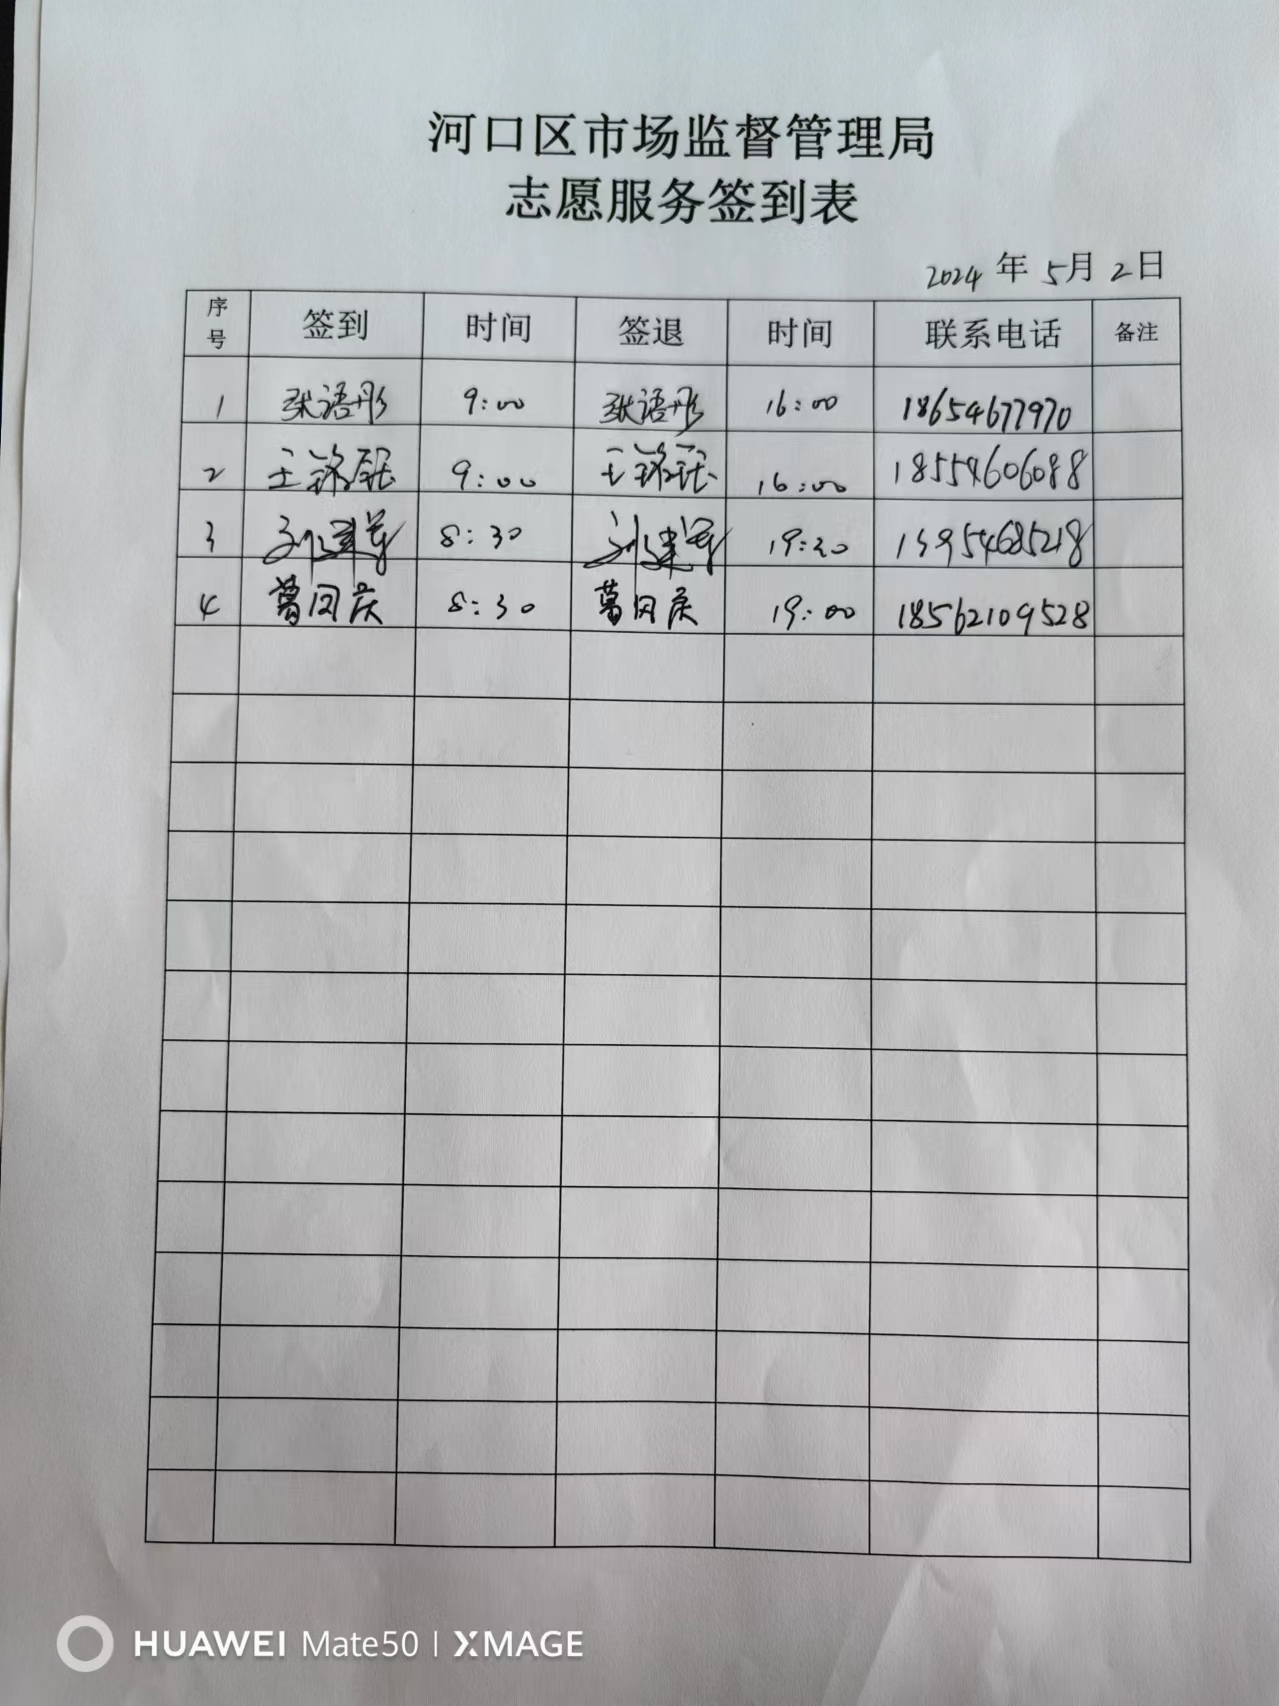 河口区市场监督管理局
志愿服务签到表
2024 年 5月 2日
序号 签到 时间 签退 时间 联系电话 备注
1 张语彤 9:00 张语彤 16:00 18654677970
2 王铭钰 9:00 王铭钰 16:00 18554606088
3 刘建军 8:30 刘建军 19:20 15954685218
4 葛同庆 8:30 葛同庆 19:00 18562109528
HUAWEI Mate50 | XMAGE